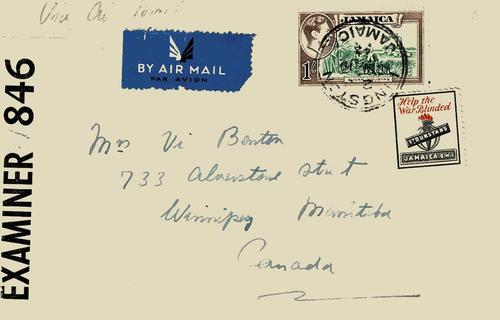 Via Air
BY AIR MAIL
PAR AVION
JAMAICA
1/-
KINGSTON
JAMAICA
Help the
War Blinded
ST DUNSTANS
JAMAICA B.W.I.
EXAMINER 846
Mrs Vi Benton
733 Alverstone
Winnipeg Manitoba
Canada